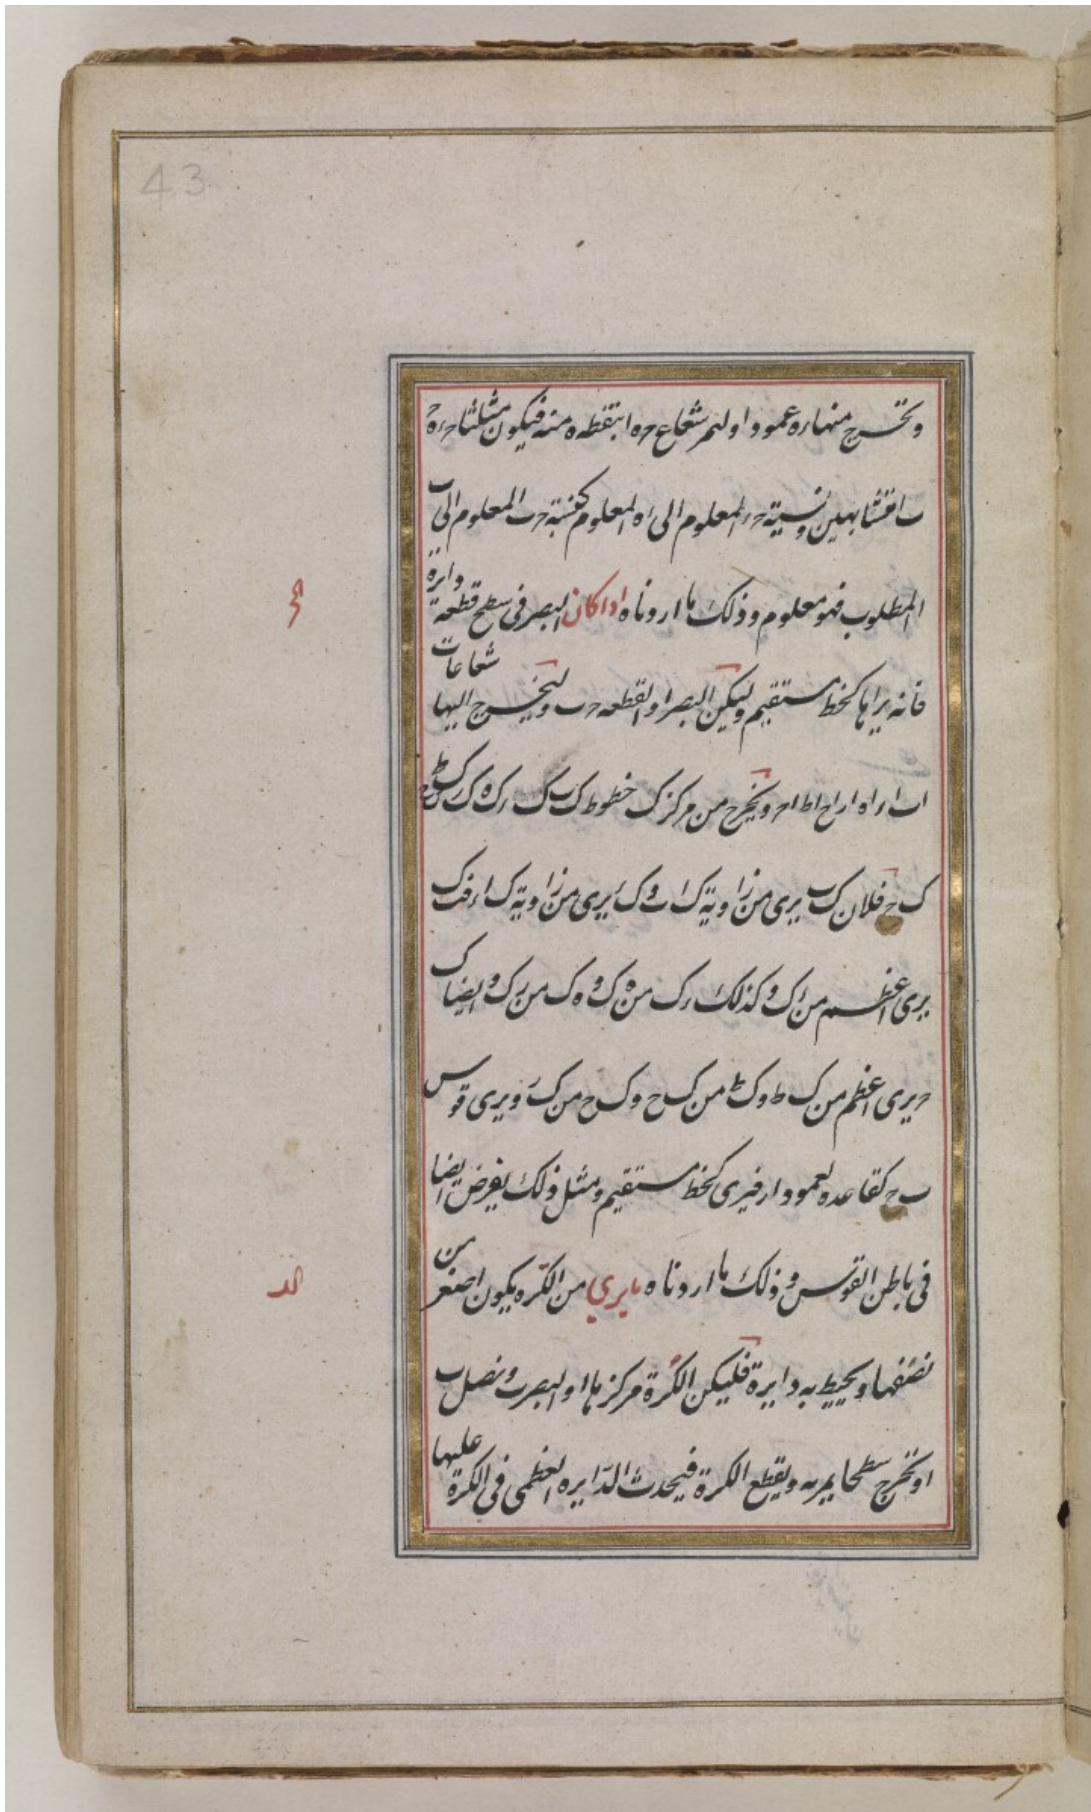 43
وتخرج منها ءه عمودا وليمر شعاع حه ا بنقطه ه منه فيكون مثلثا حءه
ح ب ا متشابهين ونسبة حء المعلوم الى ءه المعلوم كنسبة حب المعلوم الى ب ا
المطلوب فهو معلوم وذلك ما اردناه اذا كان البصر فى سطح قطعة دايرة
فانه يراها كخط مستقيم وليكن البصر ا والقطعه حب وليخرج اليها شعاعات
اب اء اه ار اح اط اح ونخرج من مركز ك خطوط ك ب ك ء ك ه ك ر ك ح ك ط
ك ح فلان ك ب يرى من زاوية ك ا ب و ك ء يرى من زاوية ك ا ء فك ب
يرى اعظم من ك ء وكذلك ك ء من ه ك و ه ك من ر ك وايضا ك
ح يرى اعظم من ك ط و ك ط من ك ح و ك ح من ك ر ويرى قوس
ب ح كقاعده لعمود ار فيرى كخط مستقيم ومثل ذلك يفرض ايضا
فى باطن القوس وذلك ما اردناه ما يرى من الكره يكون اصغر من
نصفها ويحيط به دايرة فليكن الكرة مركزها ا والبصر ب ونصل ب
ا ونخرج سطحا يمر به ويقطع الكرة فيحدث الدايره العظمى فى الكرة عليها
كح
كد